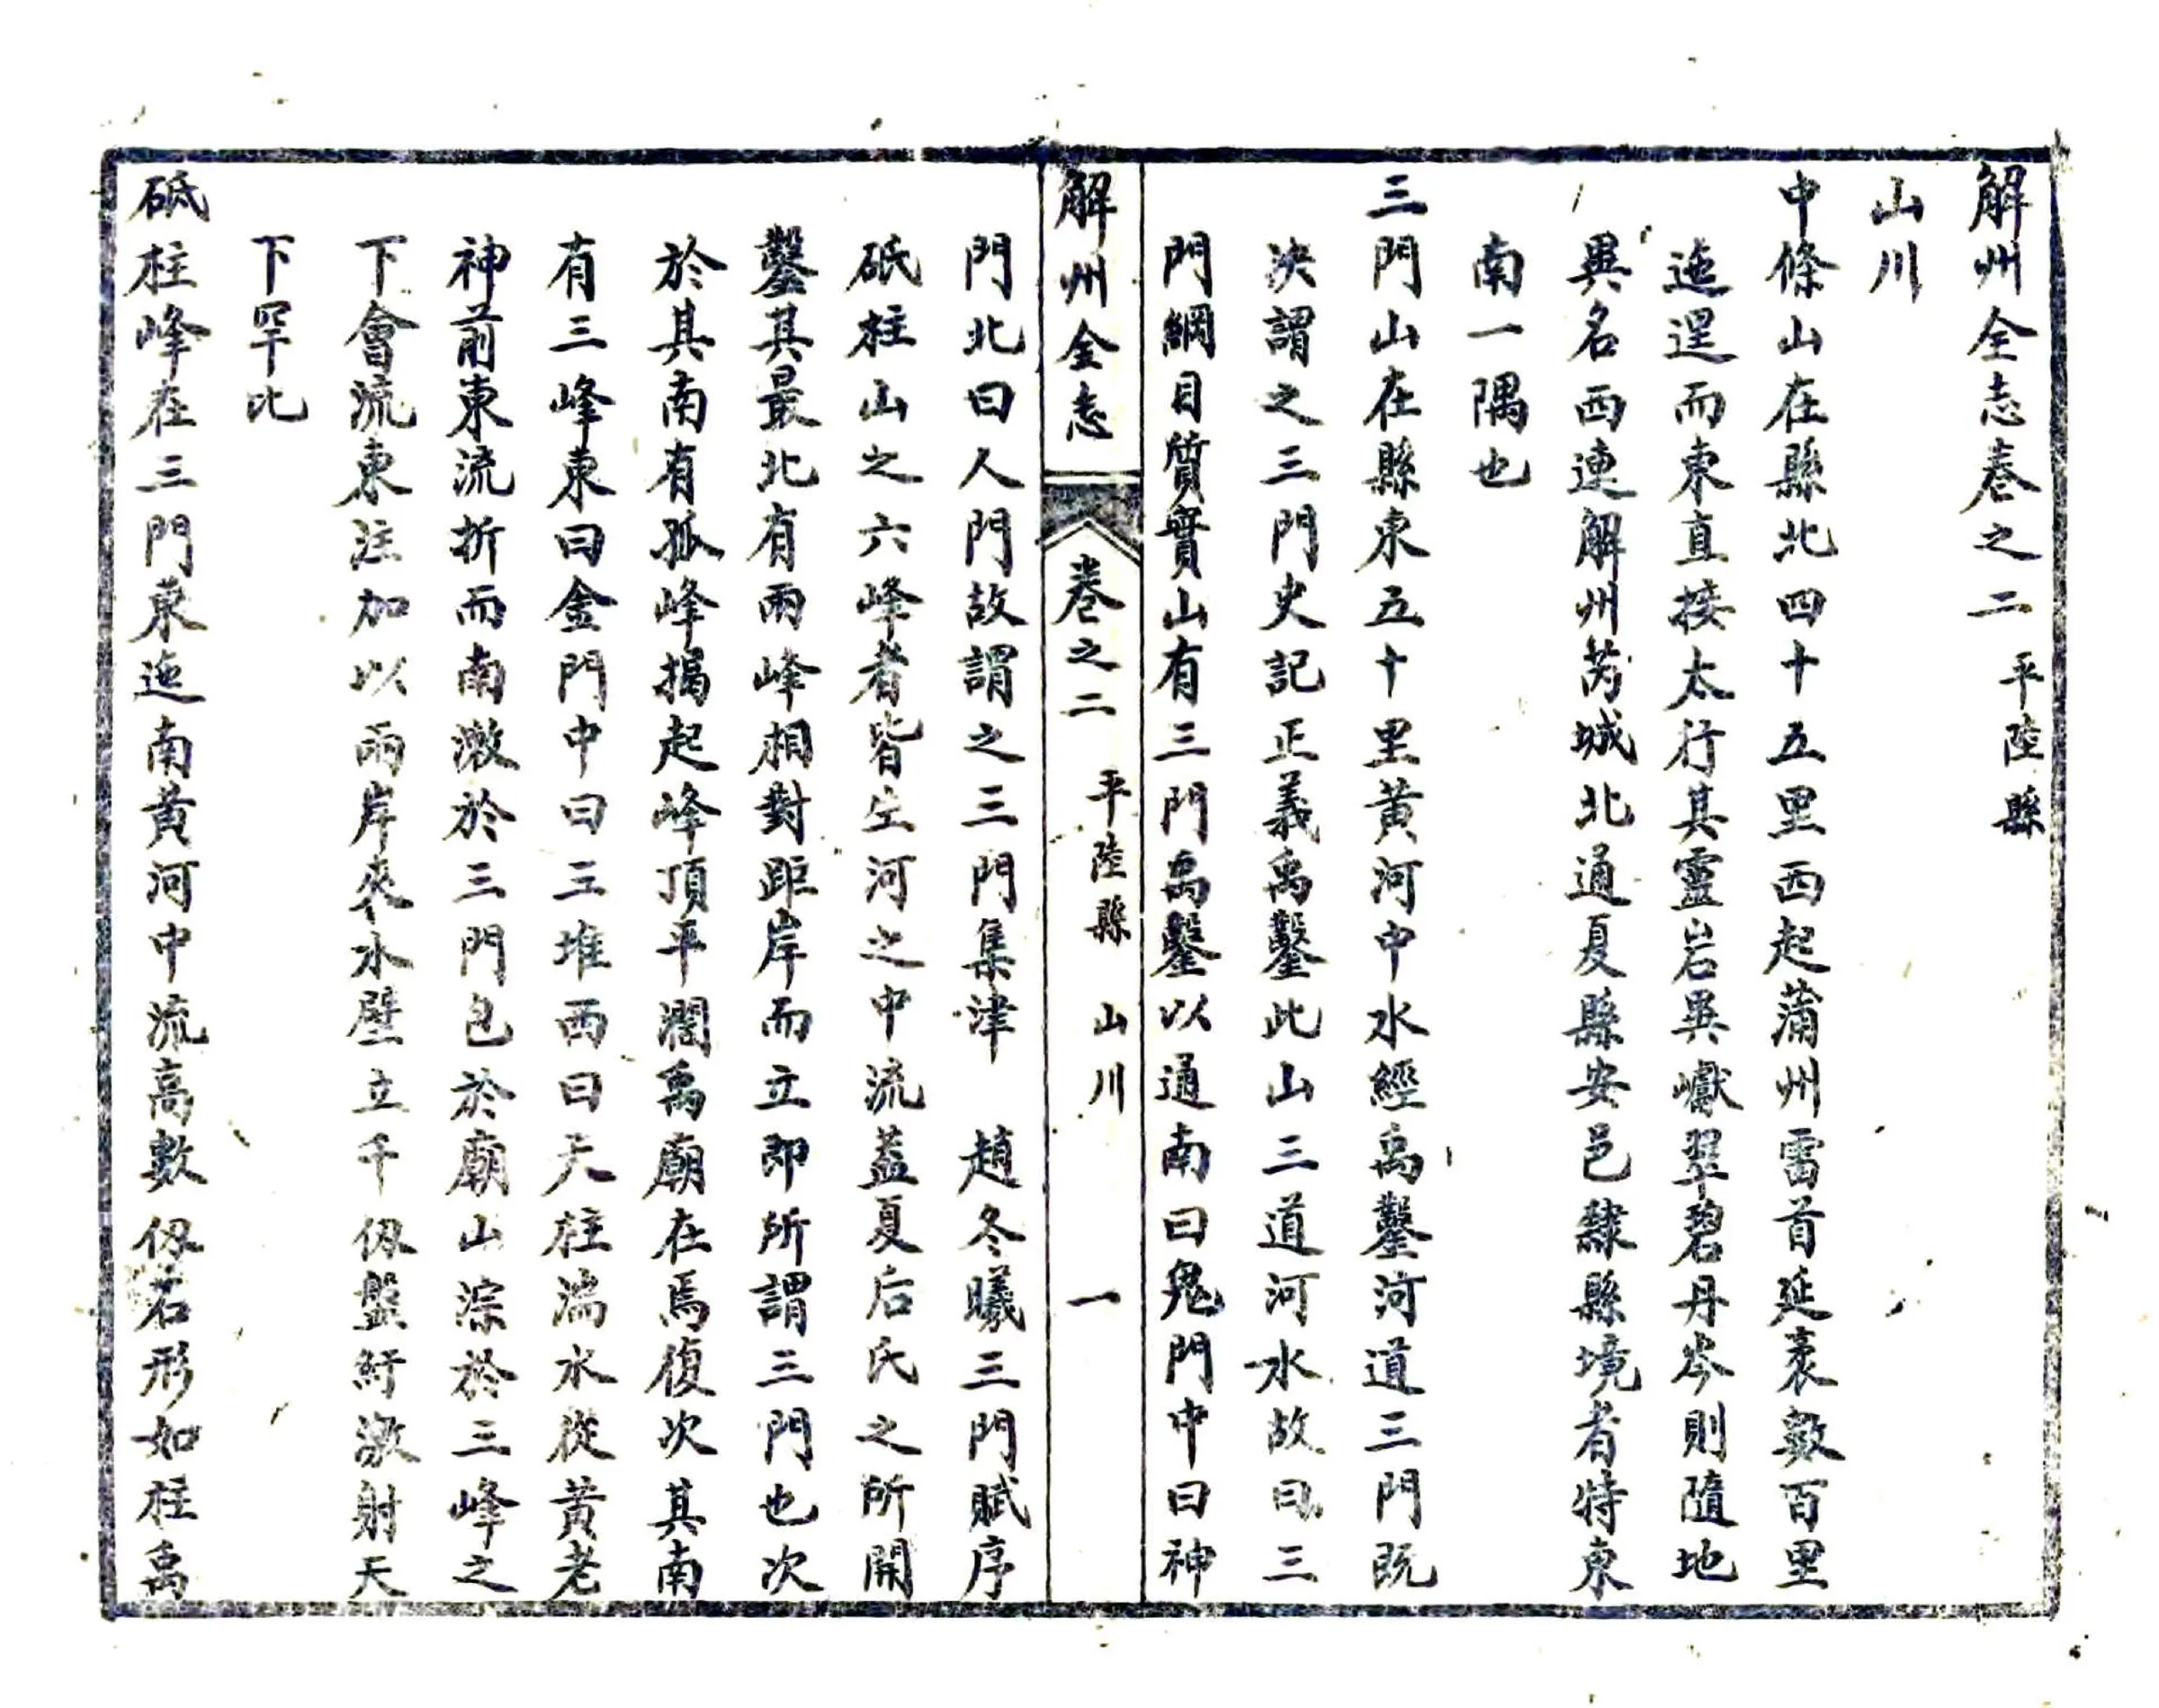 解州全志卷之二 平陸縣
山川
中條山在縣北四十五里西起蒲州雷首延袤數百里
迤逞而東直接太行其靈岩異巘翠碧丹岑則隨地
異名西連解州芮城北通夏縣安邑隸縣境者特東
南一隅也
三門山在縣東五十里黃河中水經禹鑿河道三門既
決謂之三門史記正義禹鑿此山三道河水故曰三
門綱目質實山有三門禹鑿以通南曰鬼門中曰神
解州全志 卷之二 平陸縣 山川 一
門北曰人門故謂之三門集津 趙冬曦三門賦序
砥柱山之六峰者皆生河之中流葢夏后氏之所開
鑿其最北有兩峰相對距岸而立即所謂三門也次
於其南有孤峰揭起峰頂平濶禹廟在焉復次其南
有三峰東曰金門中曰三堆西曰天柱湍水從黃老
神前東流折而南漱於三門包於廟山淙於三峰之
下會流東注加以兩岸夾水壁立千仞盤紆激射天
下罕比
砥柱峰在三門東迤南黃河中流高數仞若形如柱禹